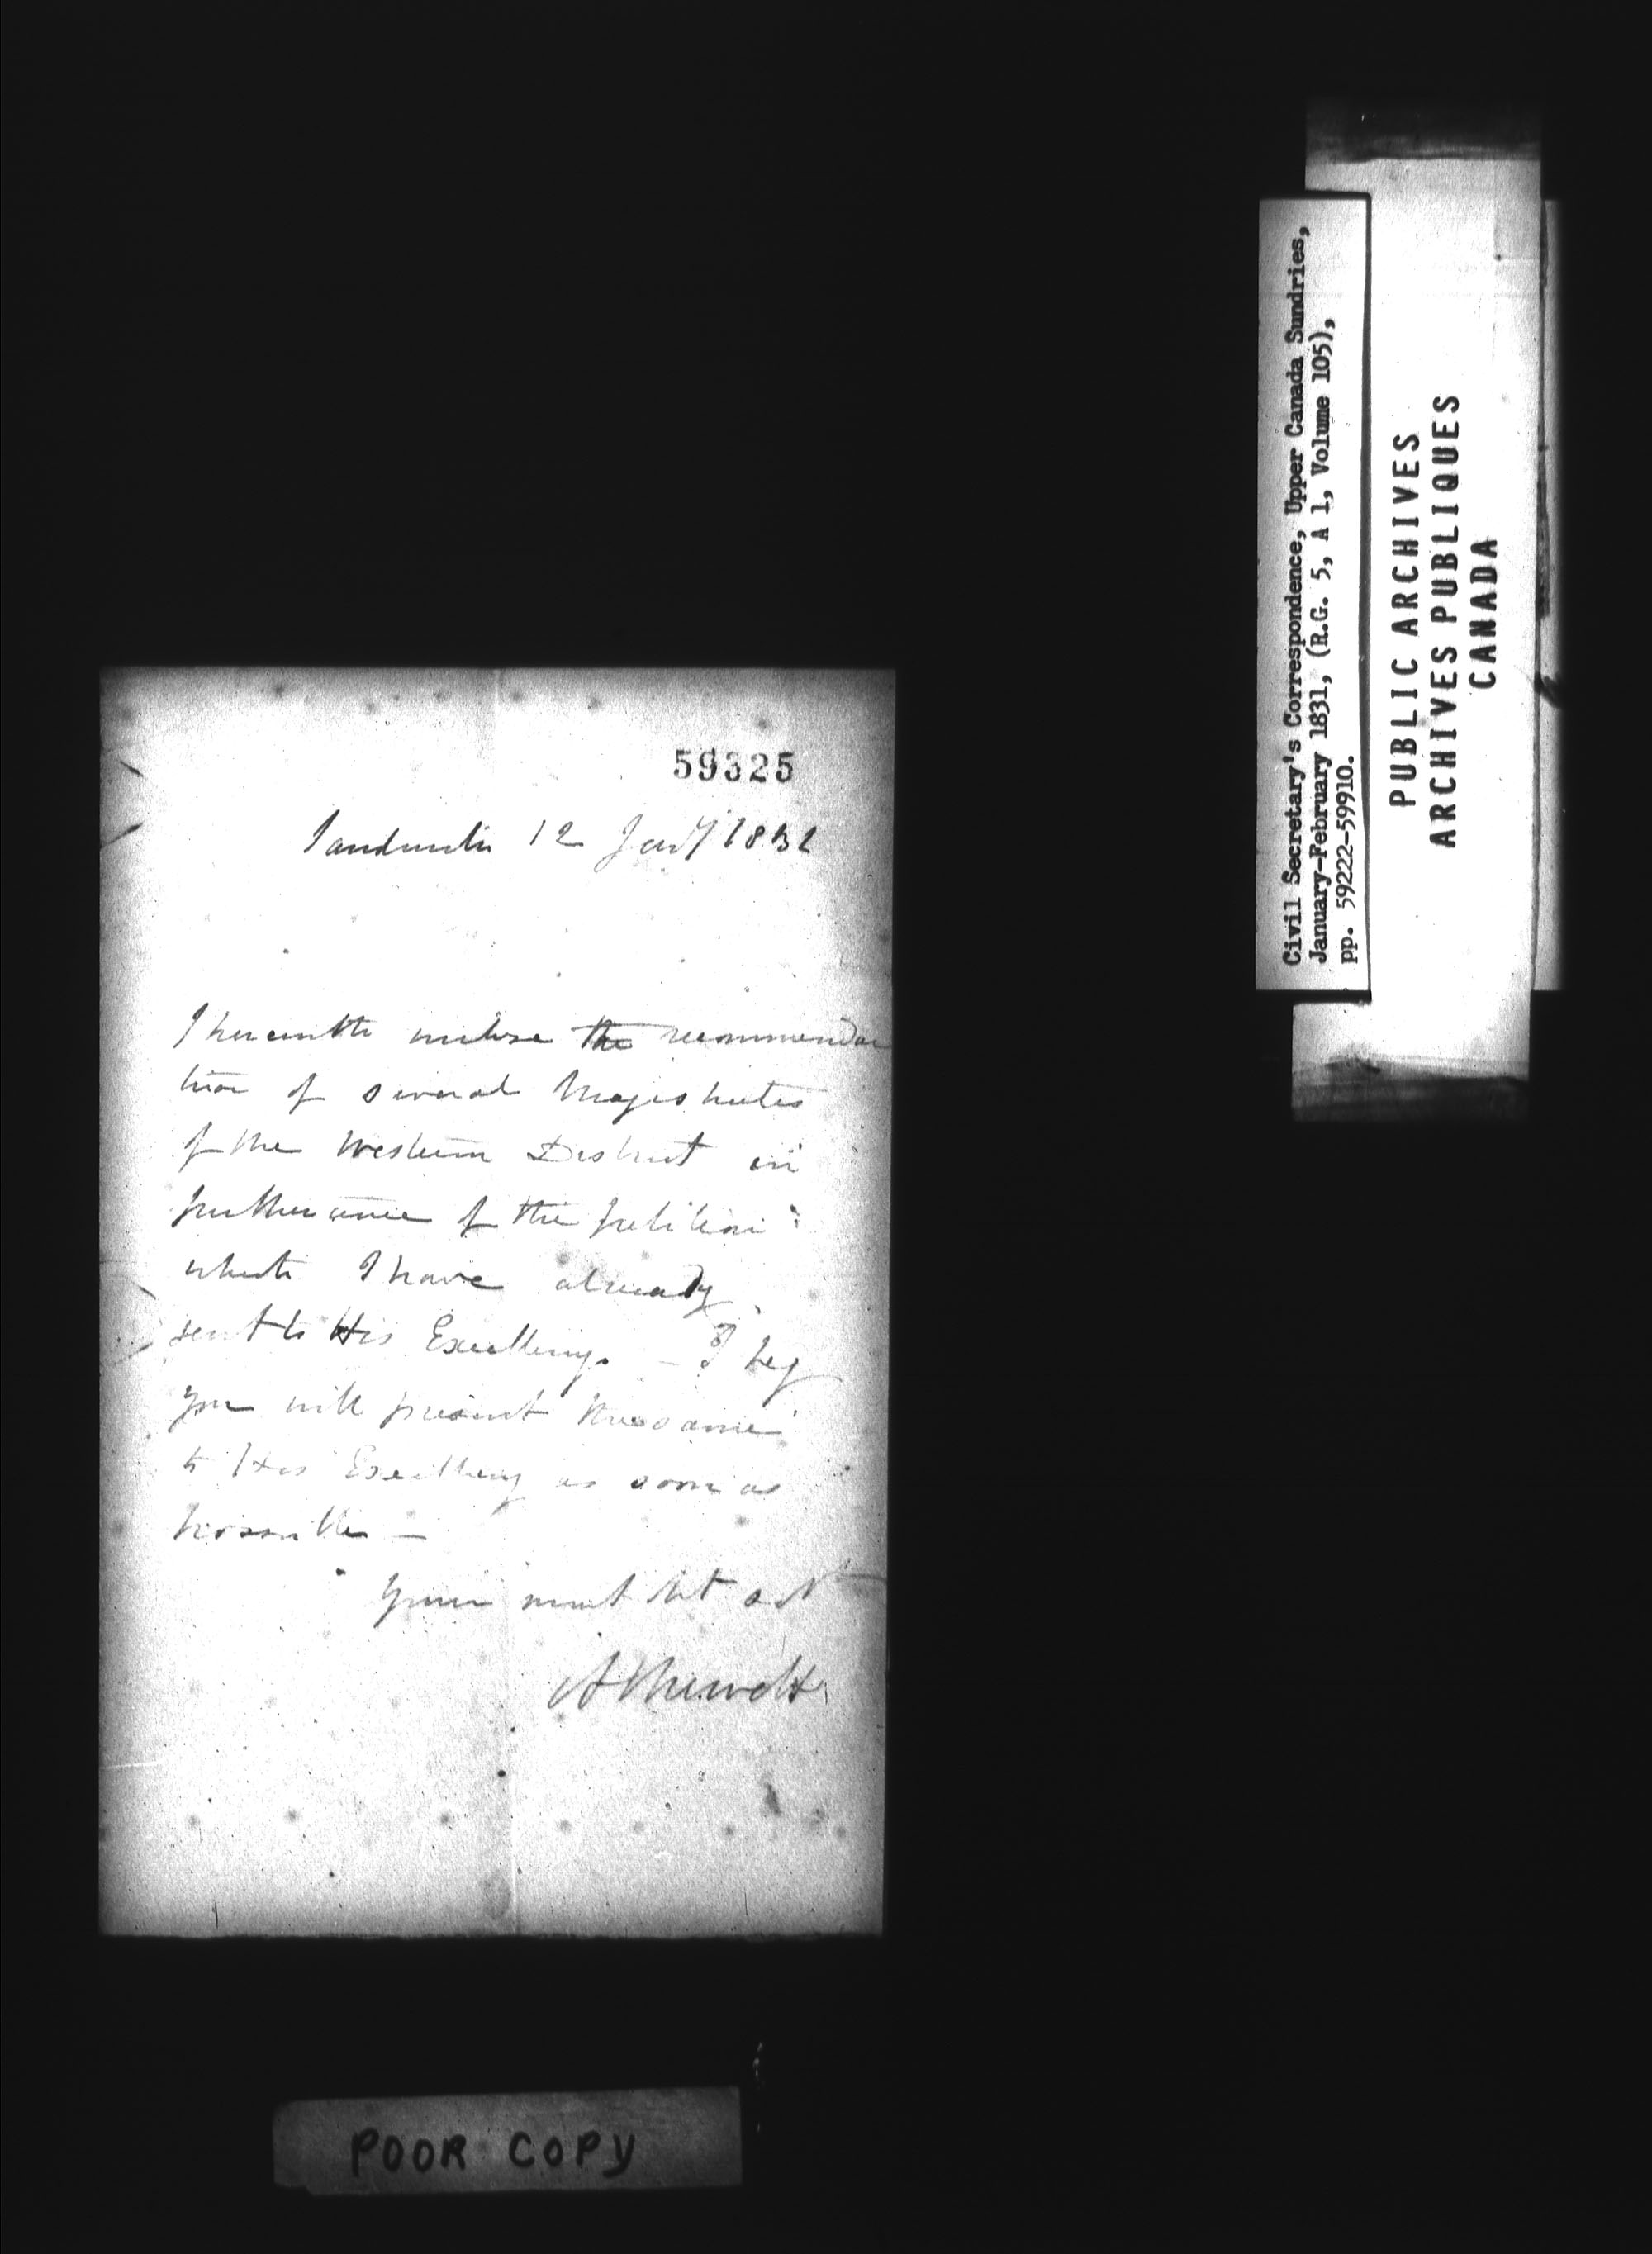 59325
Sandwich 12 Jany 1831
I herewith inclose the recommenda
tion of several Magistrates
of the Western District in
furtherance of the petition
which I have already
sent to His Excellency. — I beg
you will present the same
to His Excellency as soon as
possible —
Yours most
Civil Secretary's Correspondence, Upper Canada Sundries,
January-February 1831, (R.G. 5, A 1, Volume 105),
pp. 59222-59910.
PUBLIC ARCHIVES
ARCHIVES PUBLIQUES
CANADA
POOR COPY